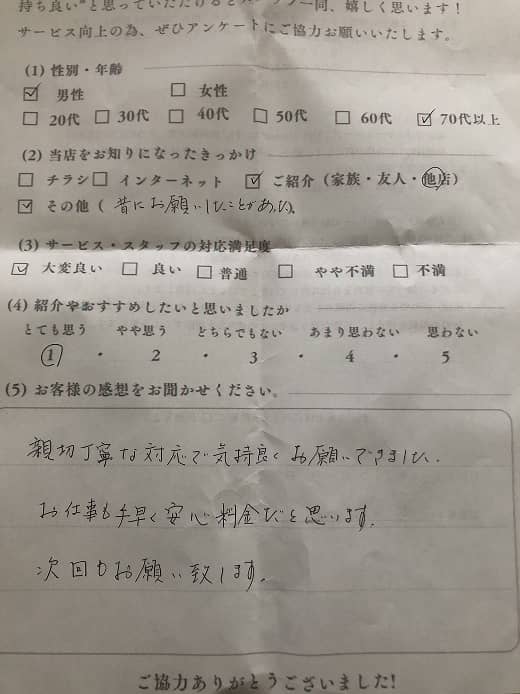 持ち良い"と思っていただけるとスタッフ一同、嬉しく思います！
サービス向上の為、ぜひアンケートにご協力お願いいたします。
(1) 性別・年齢
☑ 男性 ☐ 女性
☐ 20代 ☐ 30代 ☐ 40代 ☐ 50代 ☐ 60代 ☑ 70代以上
(2) 当店をお知りになったきっかけ
☐ チラシ ☐ インターネット ☑ ご紹介 (家族・友人・他店)
☑ その他 ( 昔にお願いしたことがあった).
(3) サービス・スタッフの対応満足度
☑ 大変良い ☐ 良い ☐ 普通 ☐ やや不満 ☐ 不満
(4) 紹介やおすすめしたいと思いましたか
とても思う やや思う どちらでもない あまり思わない 思わない
① ・ 2 ・ 3 ・ 4 ・ 5
(5) お客様の感想をお聞かせください。
親切丁寧な対応で気持良くお願いできました.
お仕事も手早く安心料金だと思います.
次回もお願い致します.
ご協力ありがとうございました!